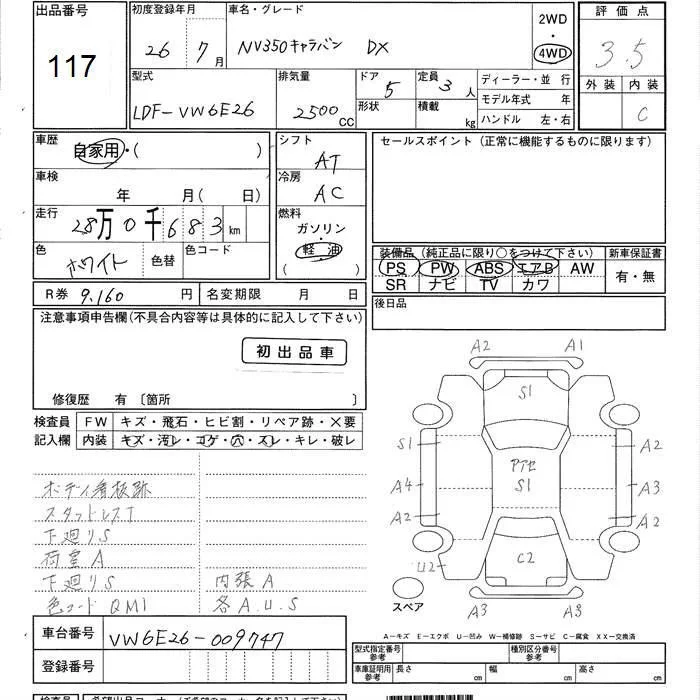 出品番号 初度登録年月 車名・グレード 2WD 評価点
117 26 年 7 月 NV350キャラバン DX ・ 4WD 3.5
型式 排気量 ドア 5 定員 3 人 ディーラー・並 行 外装 内装
LDF-VW6E26 2500 CC 形状 積載 kg モデル年式 年 C
ハンドル 左・右
車歴 自家用・( ) シフト AT セールスポイント (正常に機能するものに限ります)
車検 年 月(日) 冷房 AC
走行 28万0千683km 燃料 ガソリン・軽油 ( )
色 ホワイト 色替 色コード 装備品(純正品に限り○をつけて下さい) 新車保証書
PS PW ABS エアB AW 有・無
SR ナビ TV カワ
R券 9,160 円 名変期限 月 日 後日品
注意事項申告欄(不具合内容等は具体的に記入して下さい)
初出品車
修復歴 有 〔箇所 〕
検査員 FW キズ・飛石・ヒビ割・リペア跡・X要
記入欄 内装 キズ・汚レ・コゲ・穴・スレ・キレ・破レ
A2 A1
S1
S1 A2
アアセ
S1
A4 A3
A2 A2
U2 C2
A3 A3
スペア
ボディ看板跡
スタッドレスT
下廻りS
荷室A
下廻りS 内張A
色コード QM1 各A.U.S
A-キズ E-エクボ U-凹み W-補修跡 S-サビ C-腐食 XX-交換済
車台番号 VW6E26-009747 型式指定番号 参考 種別区分番号 参考
登録番号 車庫証明用 参考 長さ cm 幅 cm 高さ cm